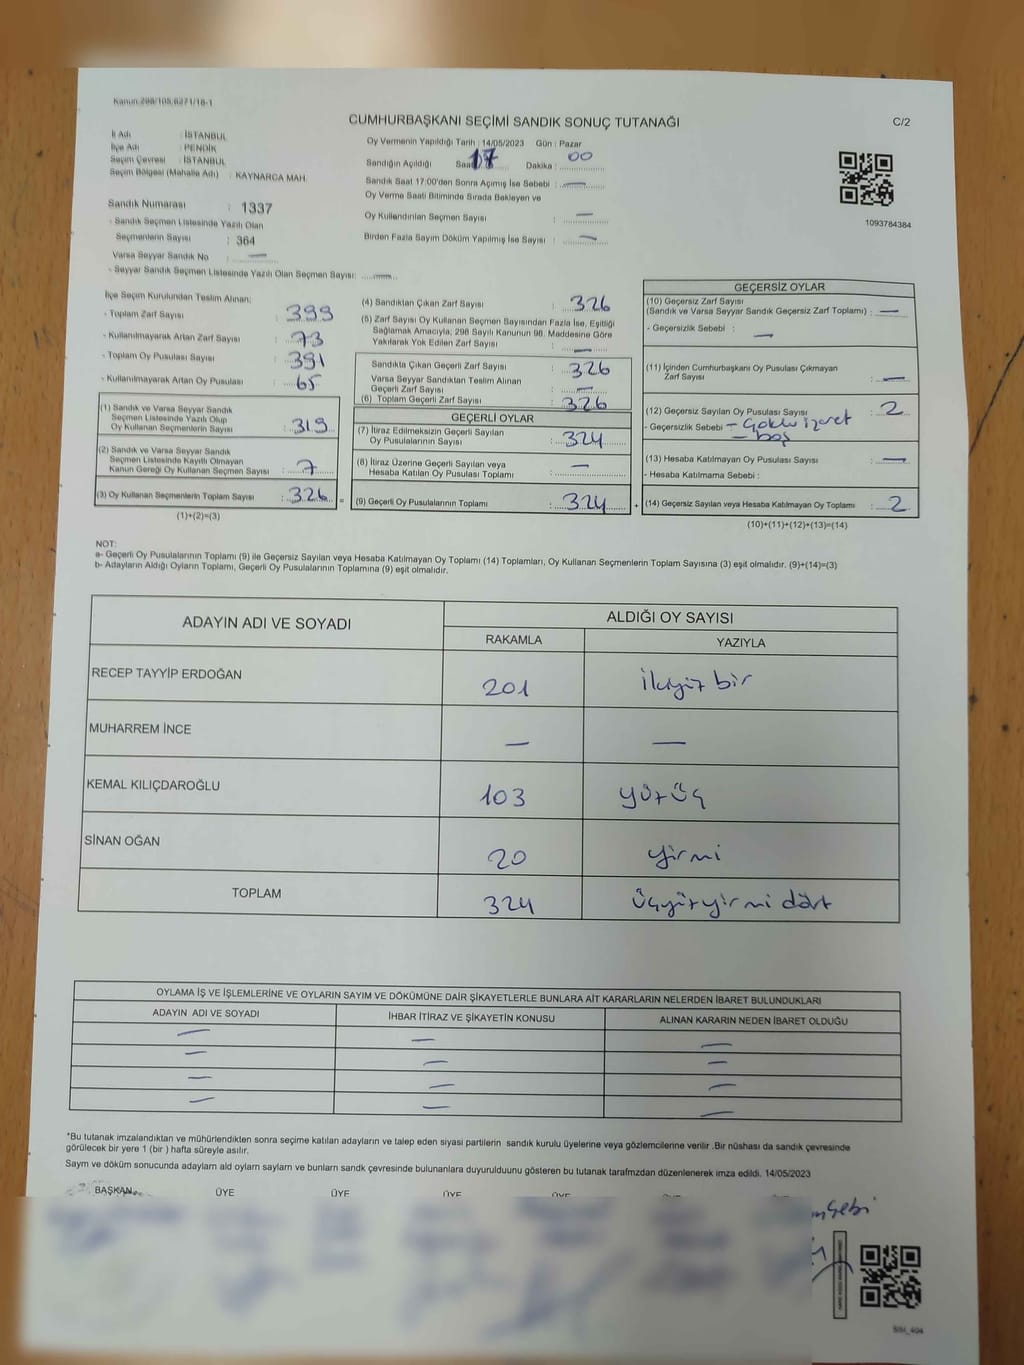 Kanun:298/105,6271/18-1
CUMHURBAŞKANI SEÇİMİ SANDIK SONUÇ TUTANAĞI
C/2
İl Adı : İSTANBUL
İlçe Adı : PENDİK
Seçim Çevresi : İSTANBUL
Seçim Bölgesi (Mahalle Adı) : KAYNARCA MAH.
Sandık Numarası : 1337
- Sandık Seçmen Listesinde Yazılı Olan
Seçmenlerin Sayısı : 364
Varsa Seyyar Sandık No : —
- Seyyar Sandık Seçmen Listesinde Yazılı Olan Seçmen Sayısı: —
Oy Vermenin Yapıldığı Tarih : 14/05/2023 Gün : Pazar
Sandığın Açıldığı Saat 17 Dakika : 00
Sandık Saat 17:00'den Sonra Açımış İse Sebebi : —
Oy Verme Saati Bitiminde Sırada Bekleyen ve
Oy Kullandırılan Seçmen Sayısı : —
Birden Fazla Sayım Döküm Yapılmış İse Sayısı : —
1093784384
İlçe Seçim Kurulundan Teslim Alınan:
- Toplam Zarf Sayısı : 399
- Kullanılmayarak Artan Zarf Sayısı : 73
- Toplam Oy Pusulası Sayısı : 391
- Kullanılmayarak Artan Oy Pusulası : 65
(1) Sandık ve Varsa Seyyar Sandık
Seçmen Listesinde Yazılı Olup
Oy Kullanan Seçmenlerin Sayısı : 319
(2) Sandık ve Varsa Seyyar Sandık
Seçmen Listesinde Kayıtlı Olmayan
Kanun Gereği Oy Kullanan Seçmen Sayısı : 7
(3) Oy Kullanan Seçmenlerin Toplam Sayısı : 326
(1)+(2)=(3)
(4) Sandıktan Çıkan Zarf Sayısı : 326
(5) Zarf Sayısı Oy Kullanan Seçmen Sayısından Fazla İse, Eşitliği
Sağlamak Amacıyla; 298 Sayılı Kanunun 98. Maddesine Göre
Yakılarak Yok Edilen Zarf Sayısı : —
Sandıkta Çıkan Geçerli Zarf Sayısı : 326
Varsa Seyyar Sandıktan Teslim Alınan
Geçerli Zarf Sayısı : —
(6) Toplam Geçerli Zarf Sayısı : 326
GEÇERLİ OYLAR
(7) İtiraz Edilmeksizin Geçerli Sayılan
Oy Pusulalarının Sayısı : 324
(8) İtiraz Üzerine Geçerli Sayılan veya
Hesaba Katılan Oy Pusulası Toplamı : —
= (9) Geçerli Oy Pusulalarının Toplamı : 324
GEÇERSİZ OYLAR
(10) Geçersiz Zarf Sayısı
(Sandık ve Varsa Seyyar Sandık Geçersiz Zarf Toplamı) : —
- Geçersizlik Sebebi : —
(11) İçinden Cumhurbaşkanı Oy Pusulası Çıkmayan
Zarf Sayısı : —
(12) Geçersiz Sayılan Oy Pusulası Sayısı : 2
- Geçersizlik Sebebi – Çoklu işaret
– boş
(13) Hesaba Katılmayan Oy Pusulası Sayısı : —
- Hesaba Katılmama Sebebi :
+ (14) Geçersiz Sayılan veya Hesaba Katılmayan Oy Toplamı : 2
(10)+(11)+(12)+(13)=(14)
NOT:
a- Geçerli Oy Pusulalarının Toplamı (9) ile Geçersiz Sayılan veya Hesaba Katılmayan Oy Toplamı (14) Toplamları, Oy Kullanan Seçmenlerin Toplam Sayısına (3) eşit olmalıdır. (9)+(14)=(3)
b- Adayların Aldığı Oyların Toplamı, Geçerli Oy Pusulalarının Toplamına (9) eşit olmalıdır.
ADAYIN ADI VE SOYADI
ALDIĞI OY SAYISI
RAKAMLA YAZIYLA
RECEP TAYYİP ERDOĞAN 201 ikiyüz bir
MUHARREM İNCE — —
KEMAL KILIÇDAROĞLU 103 yüzüç
SİNAN OĞAN 20 yirmi
TOPLAM 324 üçyüzyirmi dört
OYLAMA İŞ VE İŞLEMLERİNE VE OYLARIN SAYIM VE DÖKÜMÜNE DAİR ŞİKAYETLERLE BUNLARA AİT KARARLARIN NELERDEN İBARET BULUNDUKLARI
ADAYIN ADI VE SOYADI İHBAR İTİRAZ VE ŞİKAYETİN KONUSU ALINAN KARARIN NEDEN İBARET OLDUĞU
— — —
— — —
— — —
— — —
*Bu tutanak imzalandıktan ve mühürlendikten sonra seçime katılan adayların ve talep eden siyasi partilerin sandık kurulu üyelerine veya gözlemcilerine verilir .Bir nüshası da sandık çevresinde
görülecek bir yere 1 (bir ) hafta süreyle asılır.
Sayım ve döküm sonucunda adaylarm ald oylarn saylarn ve bunlarn sandk çevresinde bulunanlara duyurulduunu gösteren bu tutanak tarafmzdan düzenlenerek imza edildi. 14/05/2023
BAŞKAN ÜYE ÜYE ÜYE ÜYE